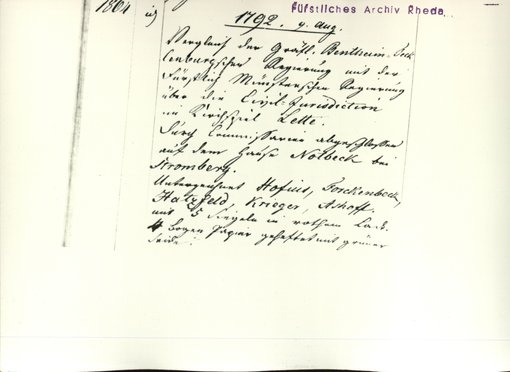 Fürstliches Archiv Rheda
1804
1792. 9. Aug.
Vergleich der Gräfl. Bentheim-Teck
lenburgschen Regierung mit der
Fürstlich Münsterschen Regierung
über die Civil-Jurisdiction
im Kirchspiel Lette.
durch Commissarien abgeschlossen
auf dem Hause Nottbeck bei
Stromberg.
Unterzeichnet Hofius, Forckenbeck,
Hatzfeld, Krieger, Ashoff.
mit 5 Siegeln in rothem Lack.
4 Bogen Papier geheftet mit grüner
Seide.